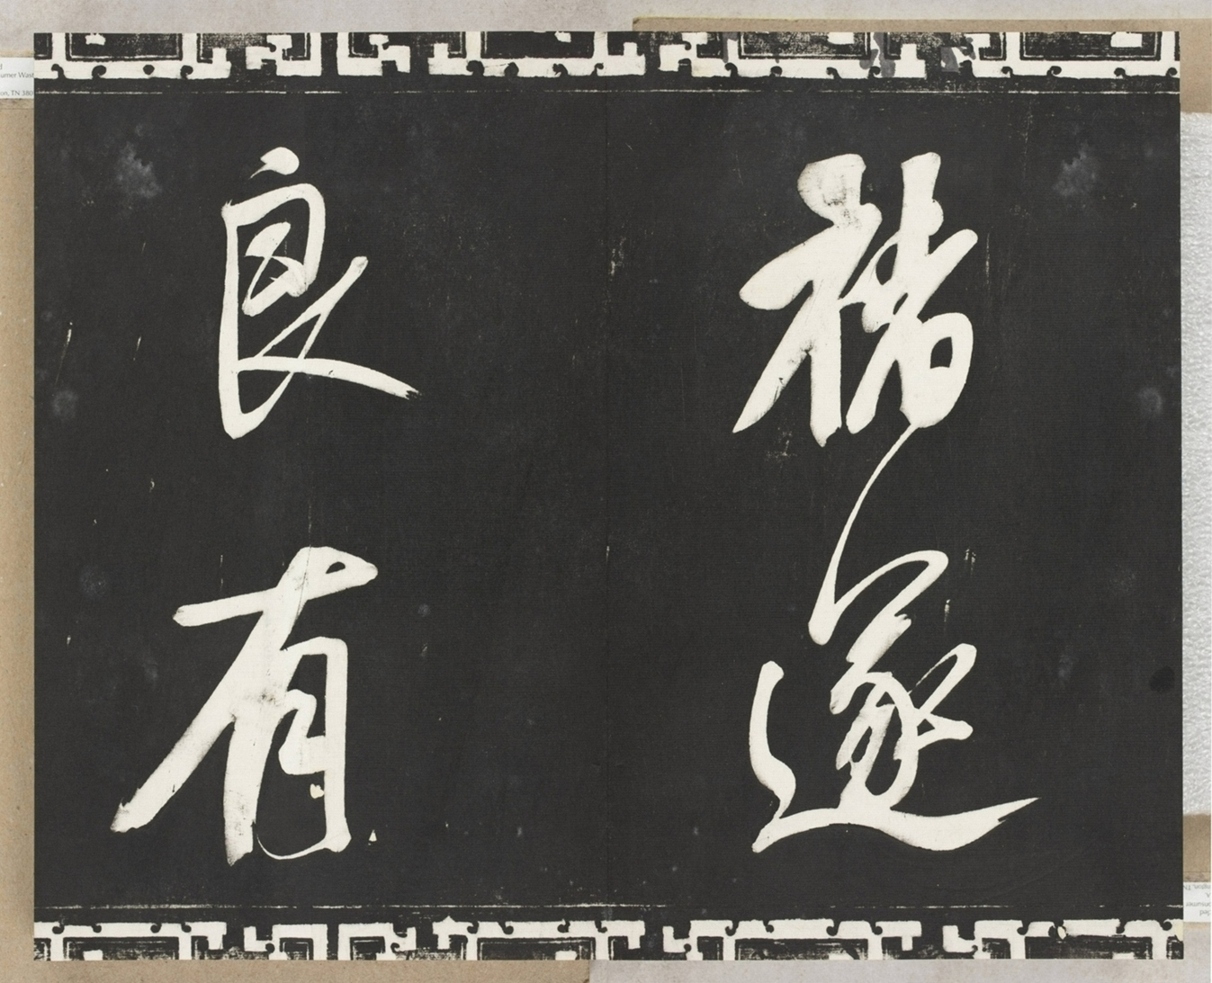 褚遂
良有